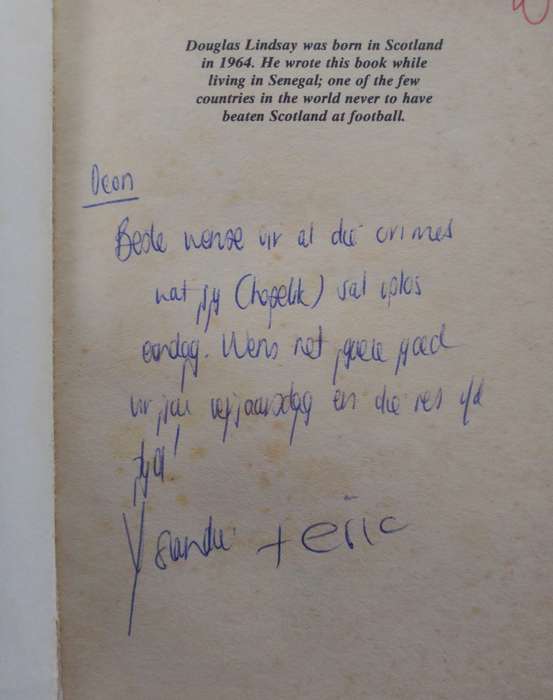 Douglas Lindsay was born in Scotland
in 1964. He wrote this book while
living in Senegal; one of the few
countries in the world never to have
beaten Scotland at football.
Deon
Beste wense vir al die crimes
wat jy (hopelik) sal oplos
eendag. Wens net goeie goed
vir jou verjaarsdag en die res v/d
jaar!
+ eric